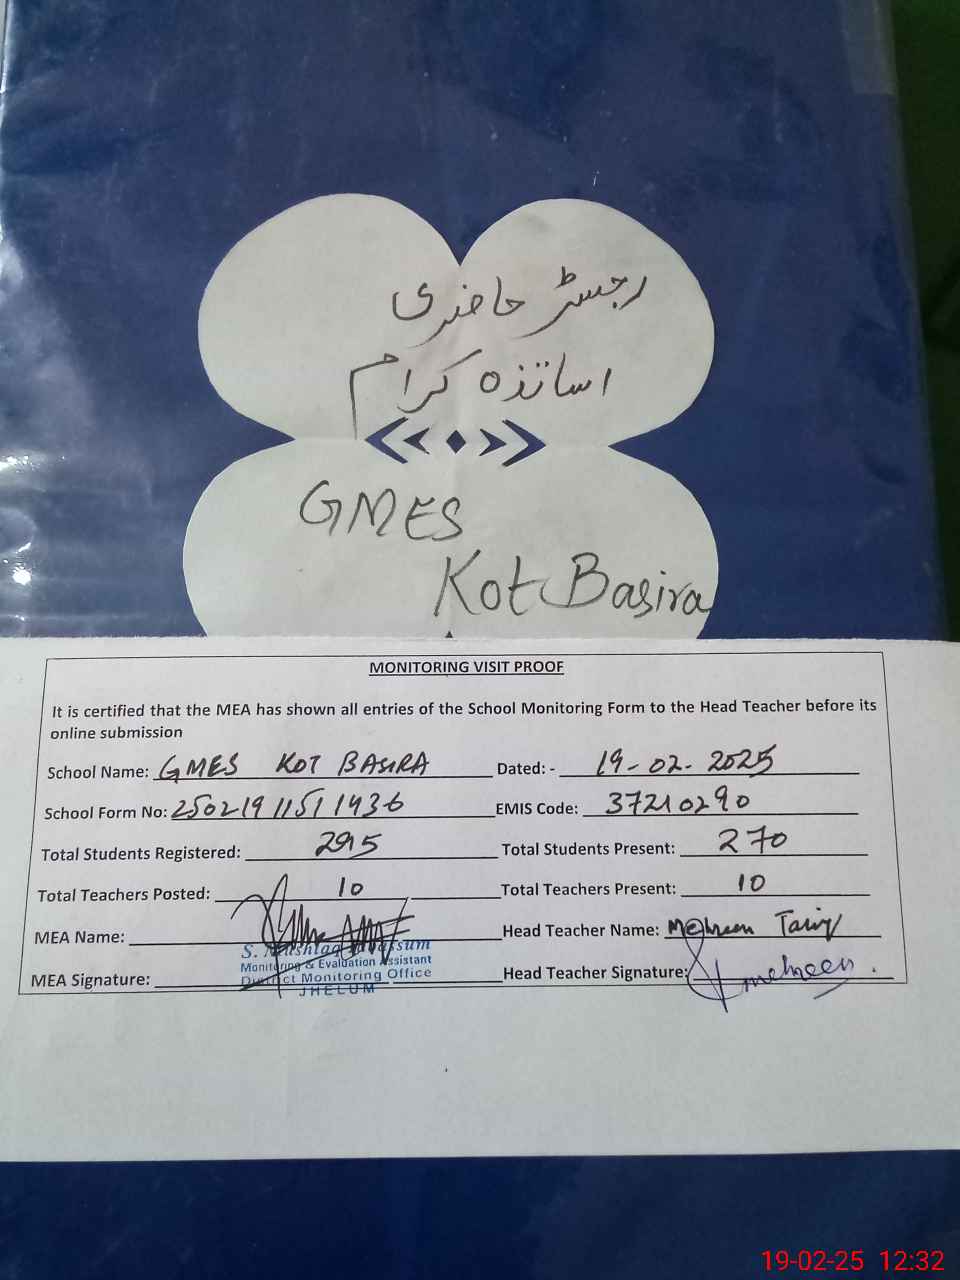 رجسٹر حاضری
اساتذہ کرام
GMES
Kot Basira
MONITORING VISIT PROOF
It is certified that the MEA has shown all entries of the School Monitoring Form to the Head Teacher before its
online submission
School Name: GMES KOT BASIRA Dated: - 19-02-2025
School Form No: 250219115111436 EMIS Code: 37210290
Total Students Registered: 295 Total Students Present: 270
Total Teachers Posted: 10 Total Teachers Present: 10
MEA Name: Head Teacher Name: Mehreen Tariq
S. Mushtaq
Monitoring & Evaluation Assistant
MEA Signature: Head Teacher Signature: mehreen.
District Monitoring Office
JHELUM
19-02-25 12:32